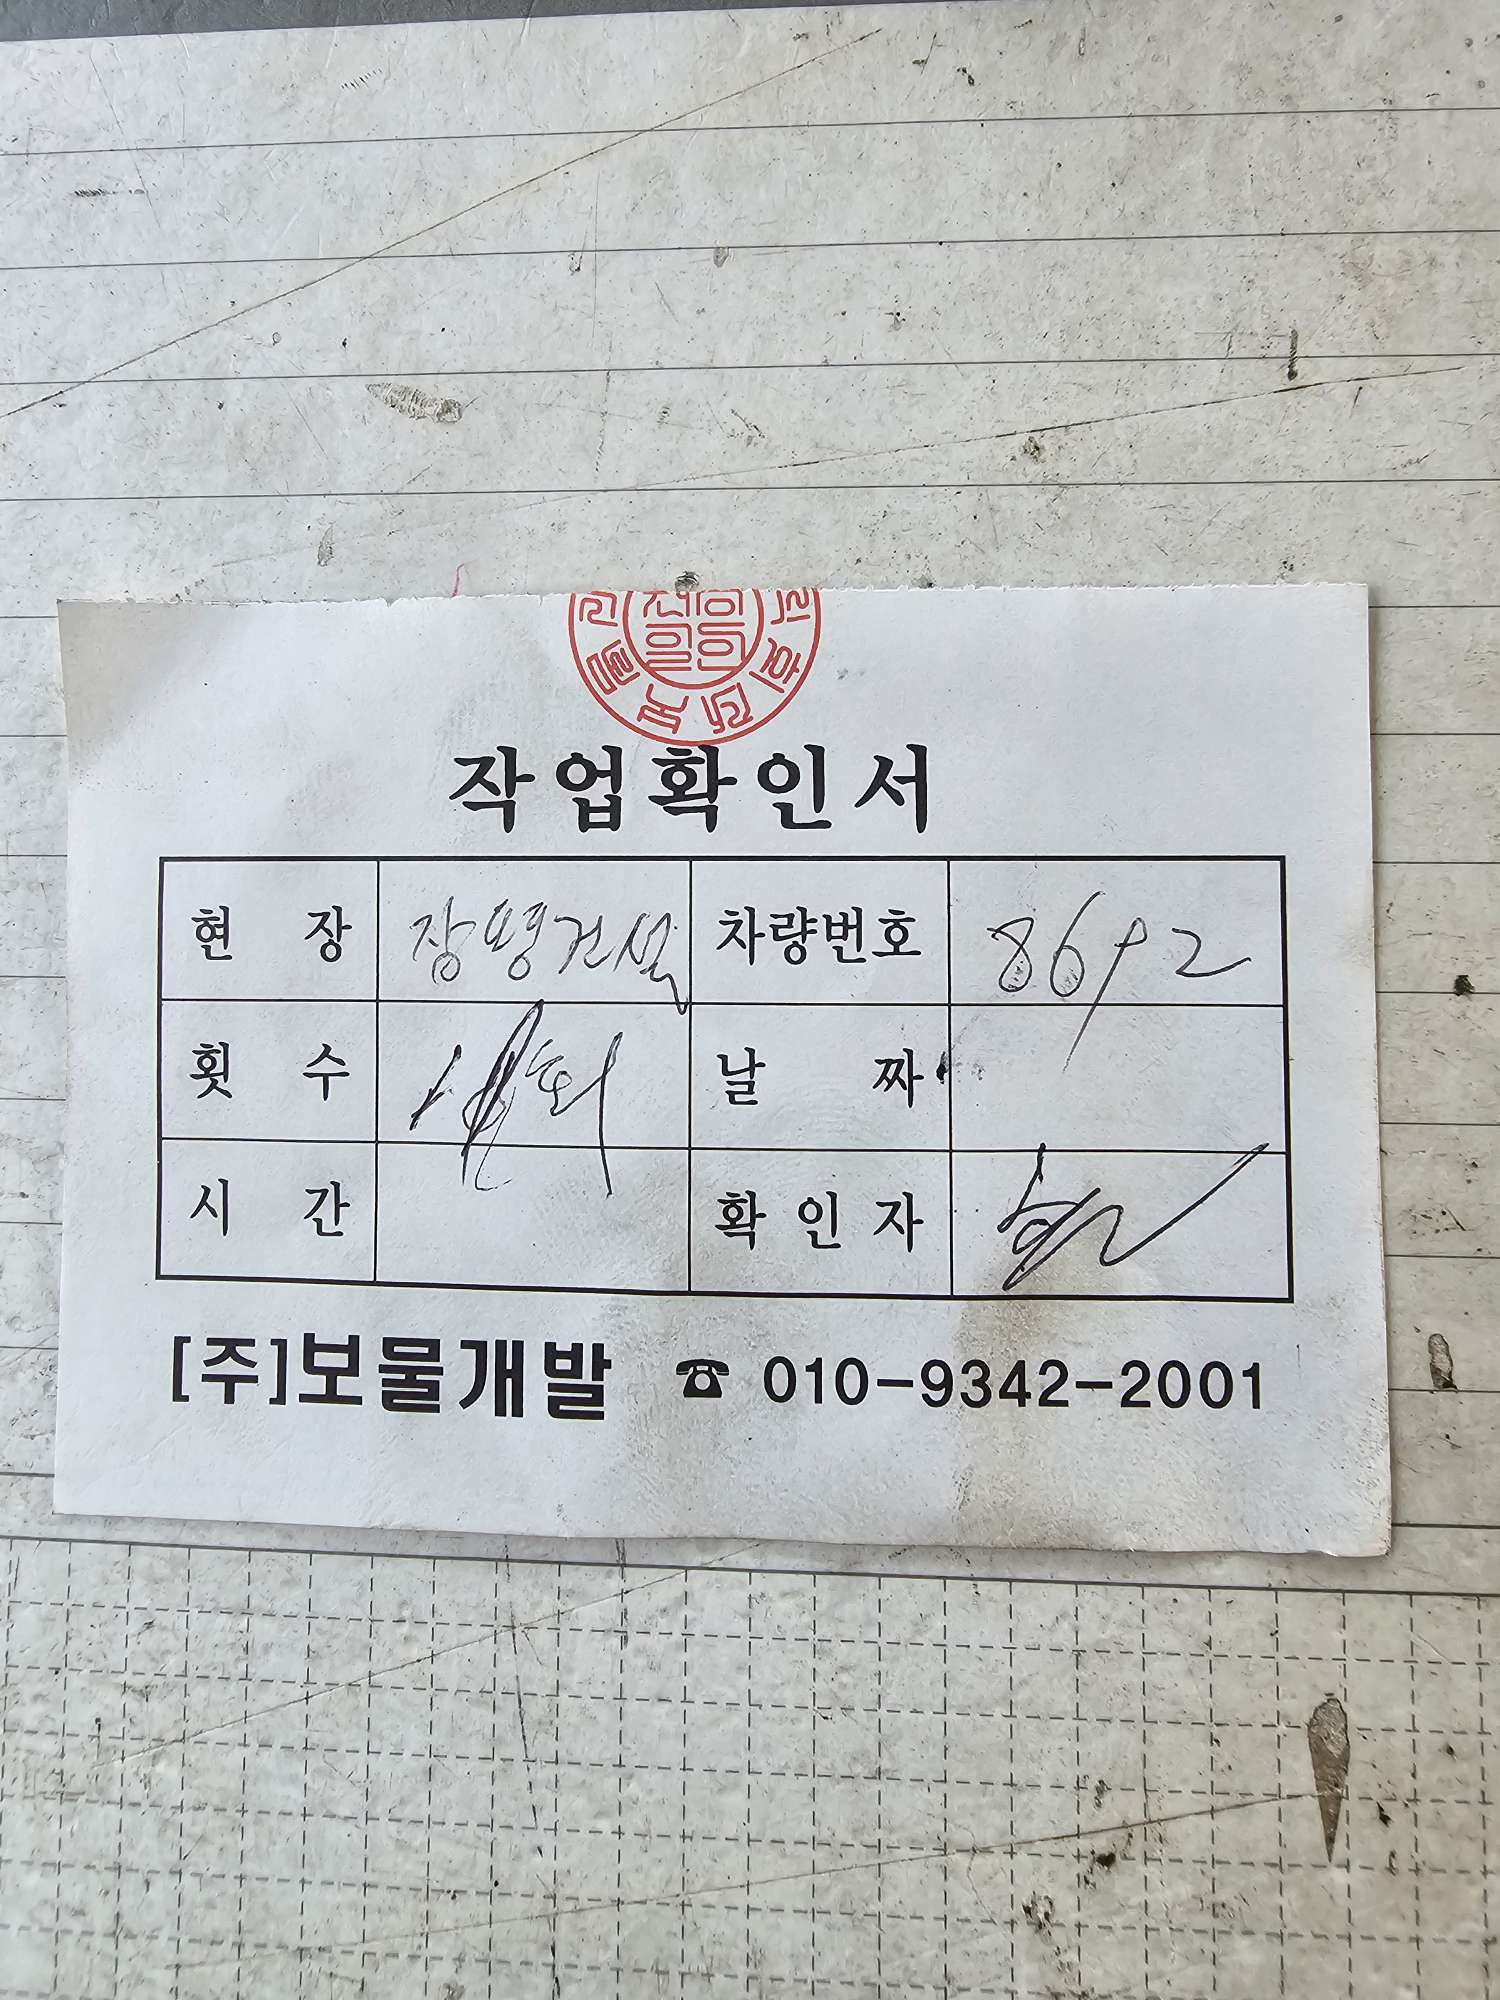 작업확인서
현 장 장평건설 차량번호 8692
횟 수 날 짜
시 간 확인자
[주]보물개발 ☎ 010-9342-2001